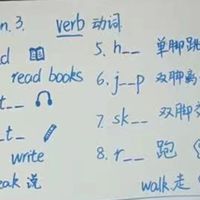 n. 3. verb 动词
d
read books
t__
_t_
write
eak 说
5. h__ 单脚跳
6. j__p 双脚离
7. sk__ 双脚交
8. r__ 跑
walk. 走